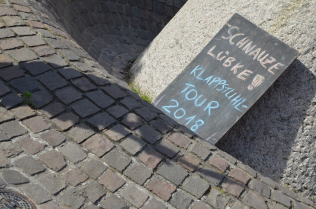 SCHNAUZE
LÜBKE!
KLAPPSTUHL
TOUR
2018